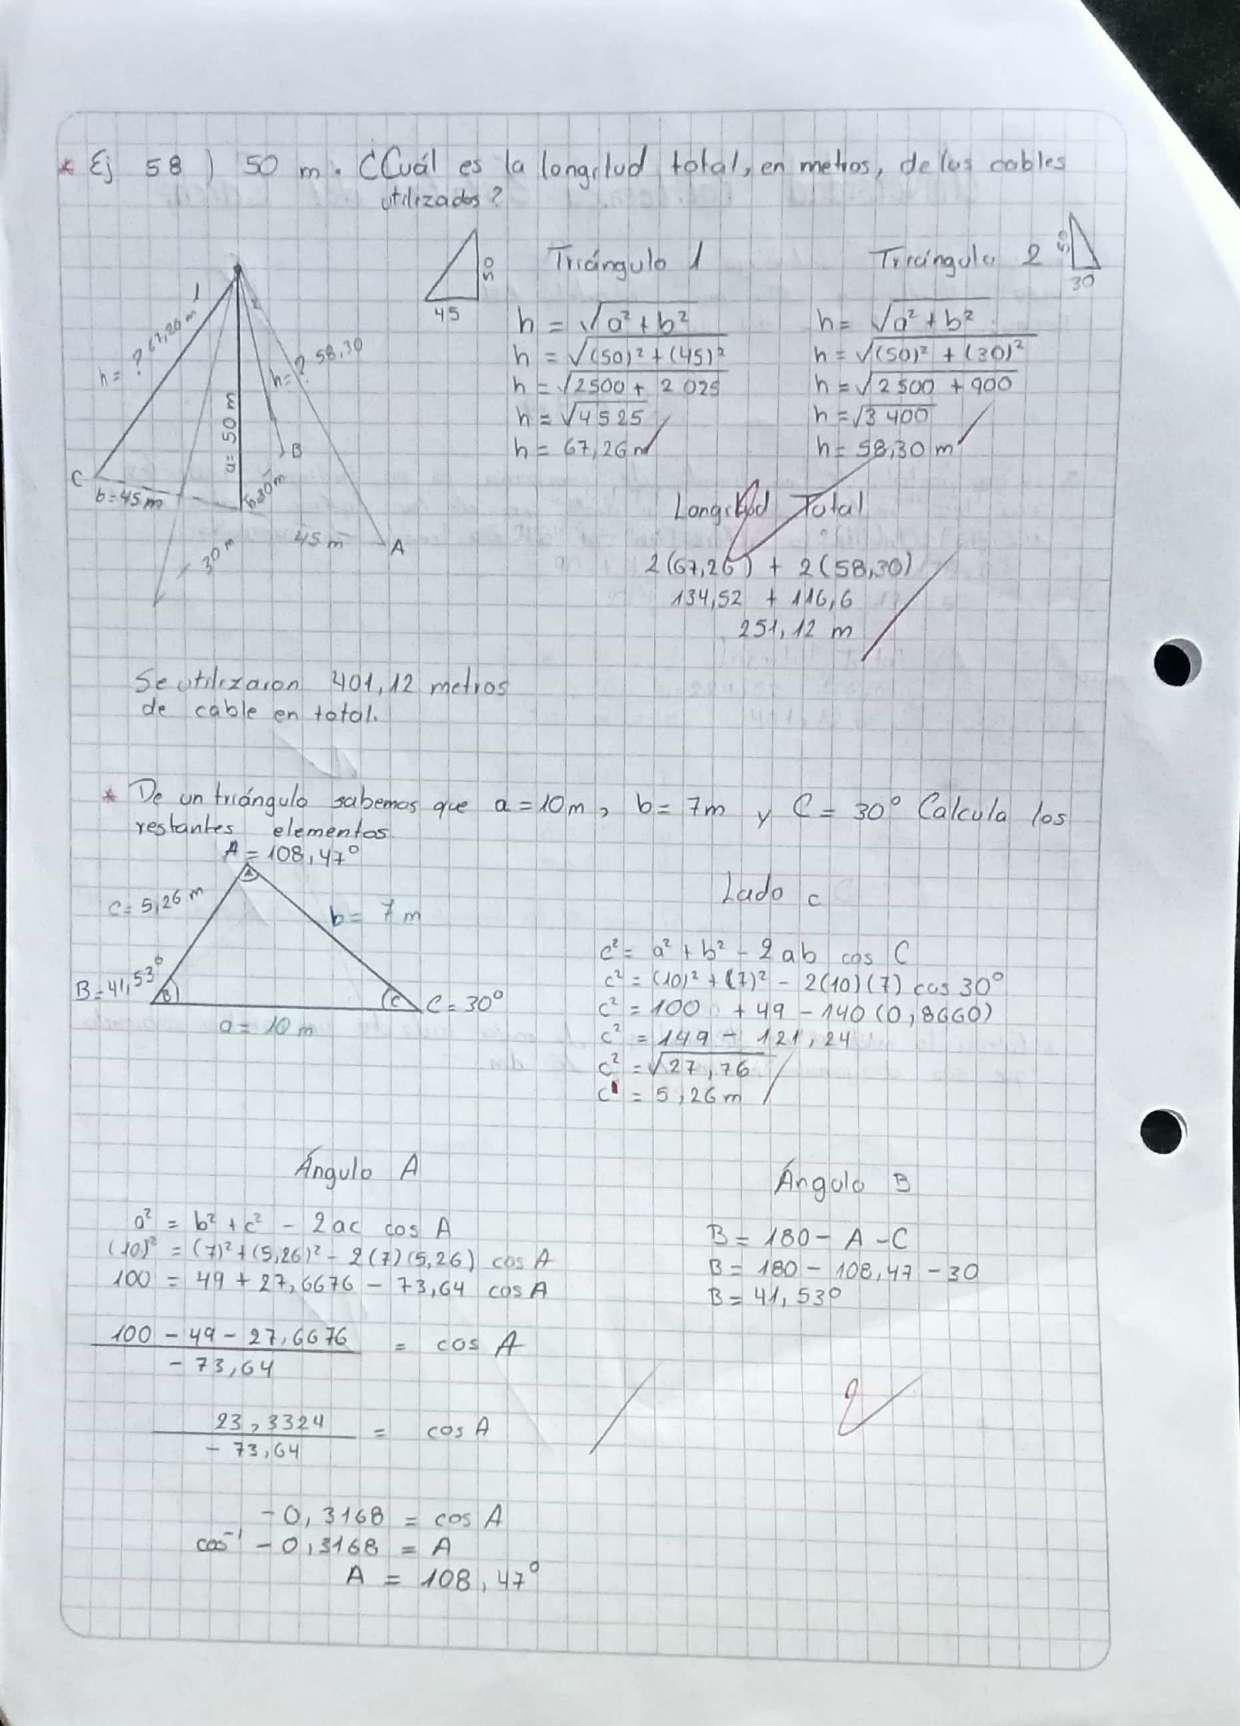 * Ej 58) 50 m. ¿Cuál es la longitud total, en metros, de los cables
utilizados?
50
45
Triángulo 1
h = √a² + b²
h = √(50)² + (45)²
h = √2500 + 2025
h = √4525
h = 67,26 m
Triángulo 2
50
30
h = √a² + b²
h = √(50)² + (30)²
h = √2500 + 900
h = √3400
h = 58,30 m
1
2
h = ? 67,26 m
h = ? 58,30
a = 50 m
C
B
b = 45 m
b=30 m
30 m
45 m
A
Longitud Total
2(67,26) + 2(58,30)
134,52 + 116,6
251,12 m
Se utilizaron 401,12 metros
de cable en total.
* De un triángulo sabemos que a = 10m, b = 7m y C = 30° Calcula los
restantes elementos
A = 108,47°
A
c = 5,26 m
b = 7 m
B = 41,53°
B
C
C = 30°
a = 10 m
Lado c
c² = a² + b² - 2ab cos C
c² = (10)² + (7)² - 2(10)(7) cos 30°
c² = 100 + 49 - 140 (0,8660)
c² = 149 - 121,24
c² = √27,76
c = 5,26 m
Ángulo A
a² = b² + c² - 2ac cos A
(10)² = (7)² + (5,26)² - 2(7)(5,26) cos A
100 = 49 + 27,6676 - 73,64 cos A
100 - 49 - 27,6676 = cos A
- 73,64
23,3324 = cos A
- 73,64
-0,3168 = cos A
cos⁻¹ - 0,3168 = A
A = 108,47°
Ángulo B
B = 180 - A - C
B = 180 - 108,47 - 30
B = 41,53°